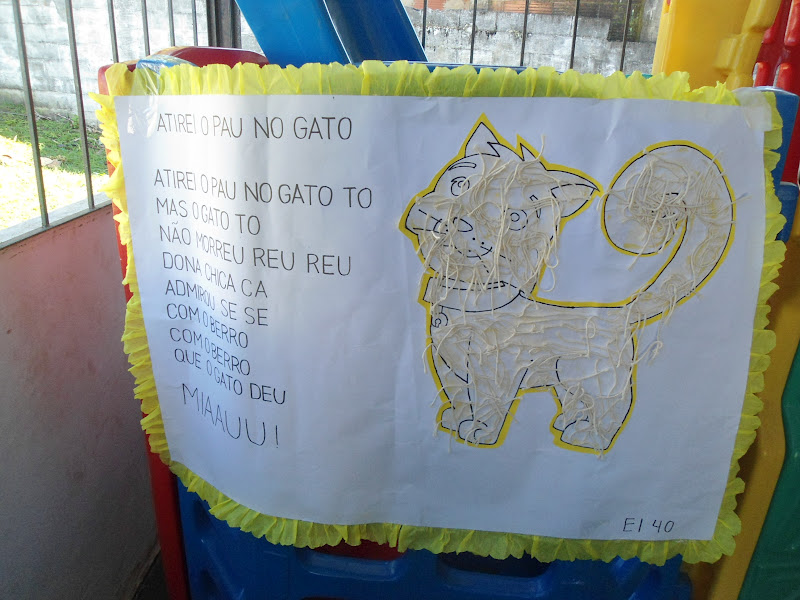 ATIREI O PAU NO GATO
ATIREI O PAU NO GATO TO
MAS O GATO TO
NÃO MORREU REU REU
DONA CHICA CA
ADMIROU SE SE
COM O BERRO
COM O BERRO
QUE O GATO DEU
MIAAUU!
EI 40